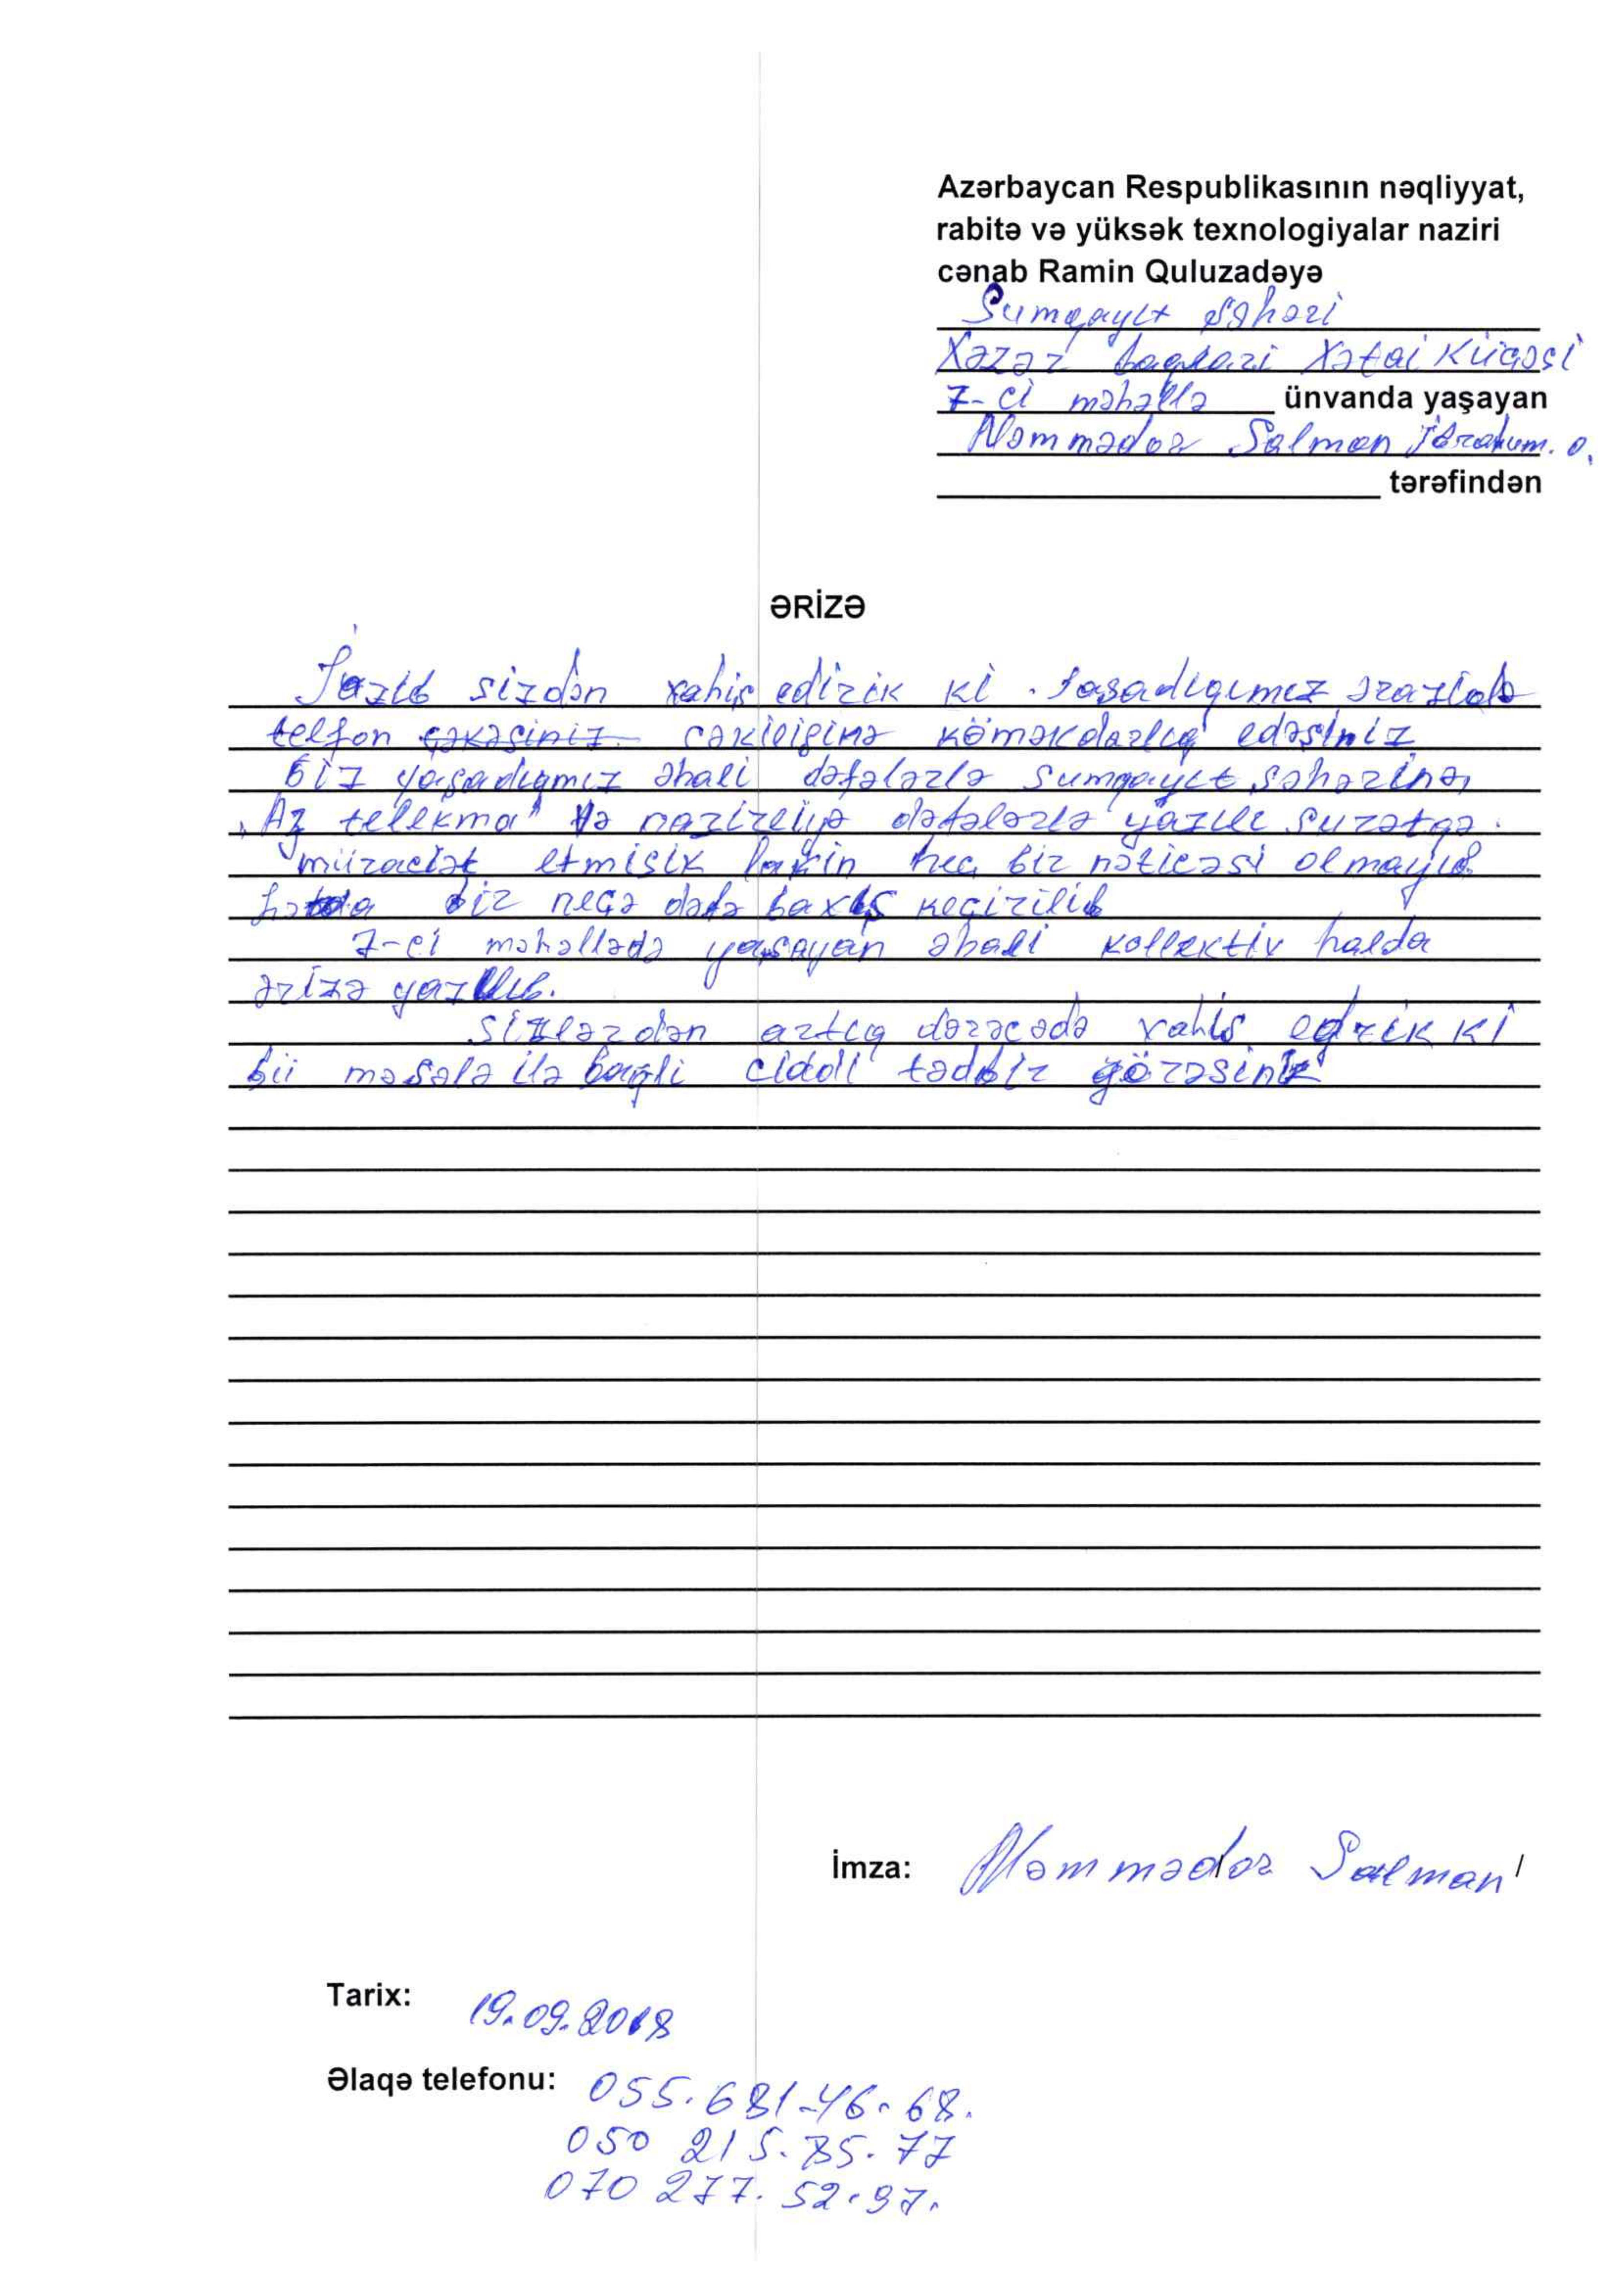 Azərbaycan Respublikasının nəqliyyat,
rabitə və yüksək texnologiyalar naziri
cənab Ramin Quluzadəyə
Sumqayıt şəhəri
Xəzər baglari Xətai Küçəsi
7-ci məhəllə ünvanda yaşayan
Məmmədov Salman İbrahim. o.
tərəfindən
ƏRİZƏ
Yazıb sizdən xahiş edirik ki. Yaşadıgımız ərazidə
telfon çəkəsiniz cəkilişinə köməkdarlıq edəsiniz
biz yaşadıgmız əhali dəfələrlə Sumqayıt şəhərinə,
"Az telekma" və nazirliyə dəfələrlə yazılı surətqə.
müraciət etmisik lakin heç bir nəticəsi olmayıb
hətda bir neçə dəfə baxış keçirilib
7-ci məhəllədə yaşayan əhali kollektiv halda
ərizə yazılıb.
Sizlərdən artıq dərəcədə xahiş edrik ki
bü məsələ ilə bagli ciddi tədbir görəsiniz
İmza: Məmmədov Salman
Tarix: 19.09.2018
Əlaqə telefonu: 055.681-46.68.
050 215.85.77
070 277.52.97.